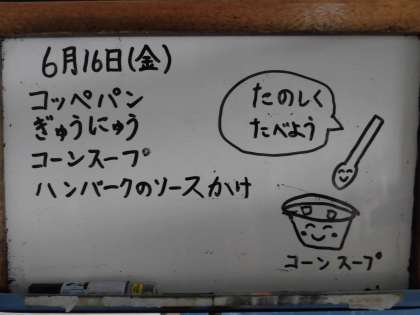 6月16日(金)
コッペパン
ぎゅうにゅう
コーンスープ
ハンバークのソースかけ
たのしく
たべよう
コーンスープ